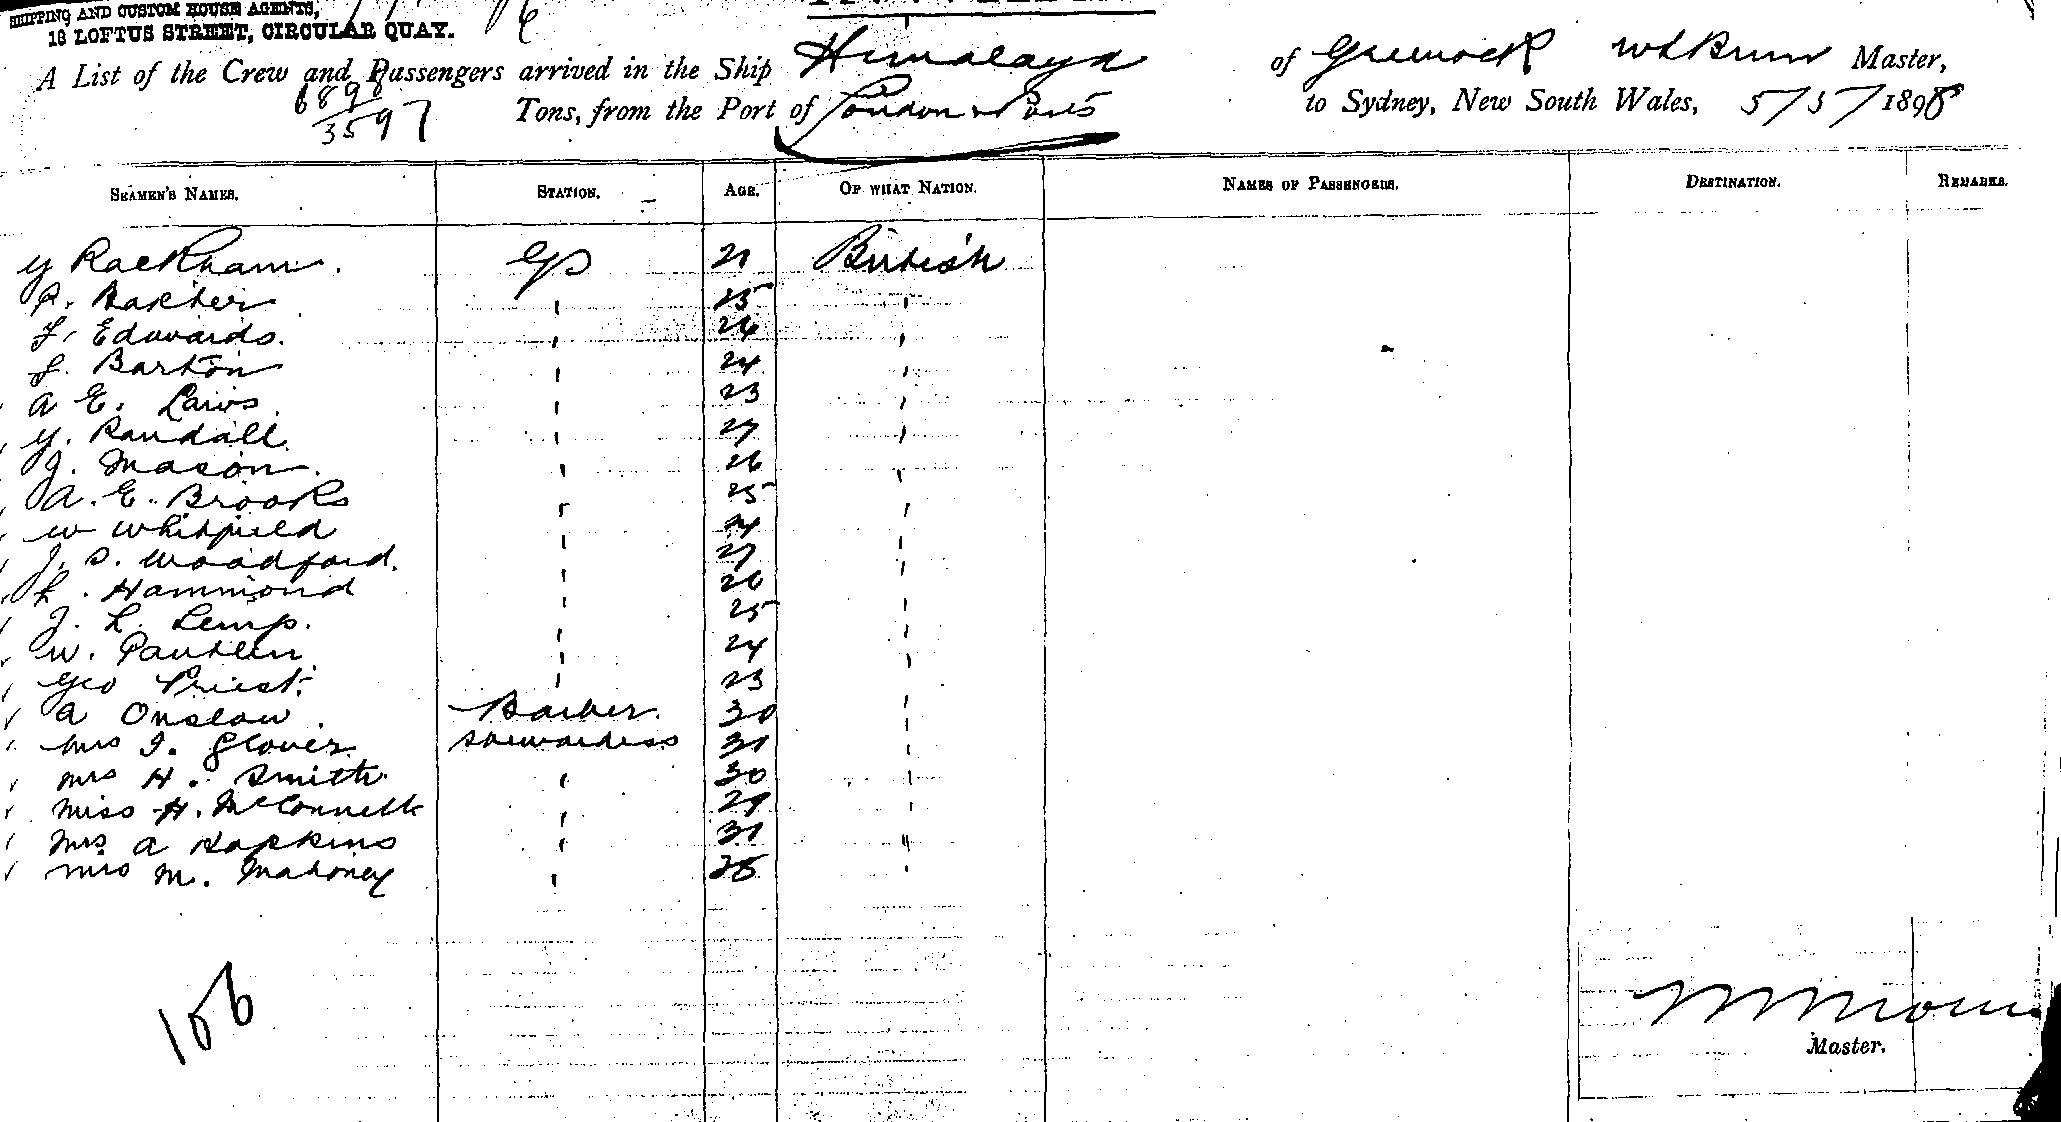 SHIPPING AND CUSTOM HOUSE AGENTS,
18 LOFTUS STREET, CIRCULAR QUAY.
A List of the Crew and Passengers arrived in the Ship Himalaya of Greenock Master,
6898
3597 Tons, from the Port of London & Ports to Sydney, New South Wales, 5/5/1898
SEAMEN'S NAMES. STATION. AGE. OF WHAT NATION. NAMES OF PASSENGERS. DESTINATION. REMARKS.
Y Rackham. 21 British
Baxter 25
F. Edwards. 26
Barton 24
A E. Laws. 23
Y. Randall. 27
J. Mason. 26
A. E. Brooks 25
W Whitfield 24
J. S. Woodford. 27
L. Hammond 26
J. L. Lemp. 25
W. 24
Geo Priest. 23
A Onslow. Barber. 30
Mrs I. Glover Stewardess 31
Mrs H. Smith ' 30
Miss H. McConnell ' 29
Mrs A Hopkins ' 31 "
Mrs M. Mahoney '
106
Master.